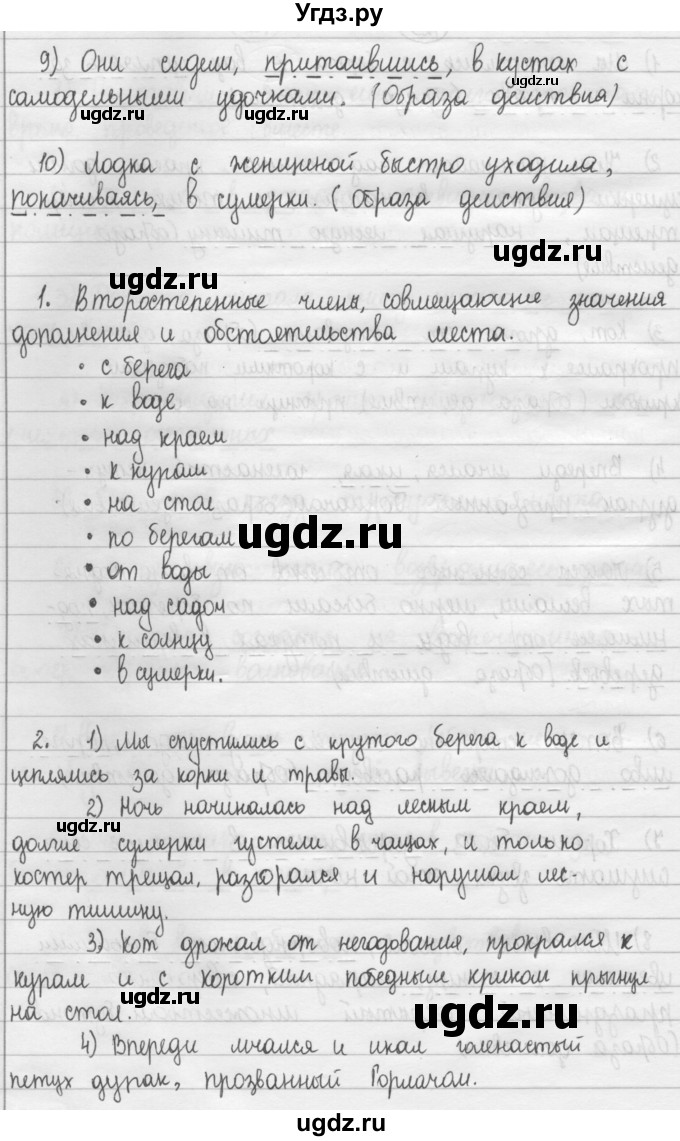 Угдз.ру
9) Они сидели, притаившись, в кустах с
самодельными удочками. (Образа действия)
10) Лодка с женщиной быстро уходила,
покачиваясь, в сумерки. (Образа действия)
1. Второстепенные члены, совмещающие значения
дополнения и обстоятельства места.
• с берега
• к воде
• над краем
• к курам
• на стол
• по берегам
• от воды
• над садом
• к солнцу
• в сумерки.
2. 1) Мы спустились с крутого берега к воде и
цеплялись за корни и травы.
2) Ночь начиналась над лесным краем,
долгие сумерки густели в чащах, и только
костер трещал, разгорался и нарушал лес-
ную тишину.
3) Кот дрожал от негодования, прокрался к
курам и с коротким победным криком прыгнул
на стол.
4) Впереди мчался и икал голенастый
петух дурак, прозванный Горлачом.
ugdz.ru
ugdz.ru
ugdz.ru
ugdz.ru
ugdz.ru
ugdz.ru
ugdz.ru
ugdz.ru
ugdz.ru
ugdz.ru
ugdz.ru
ugdz.ru